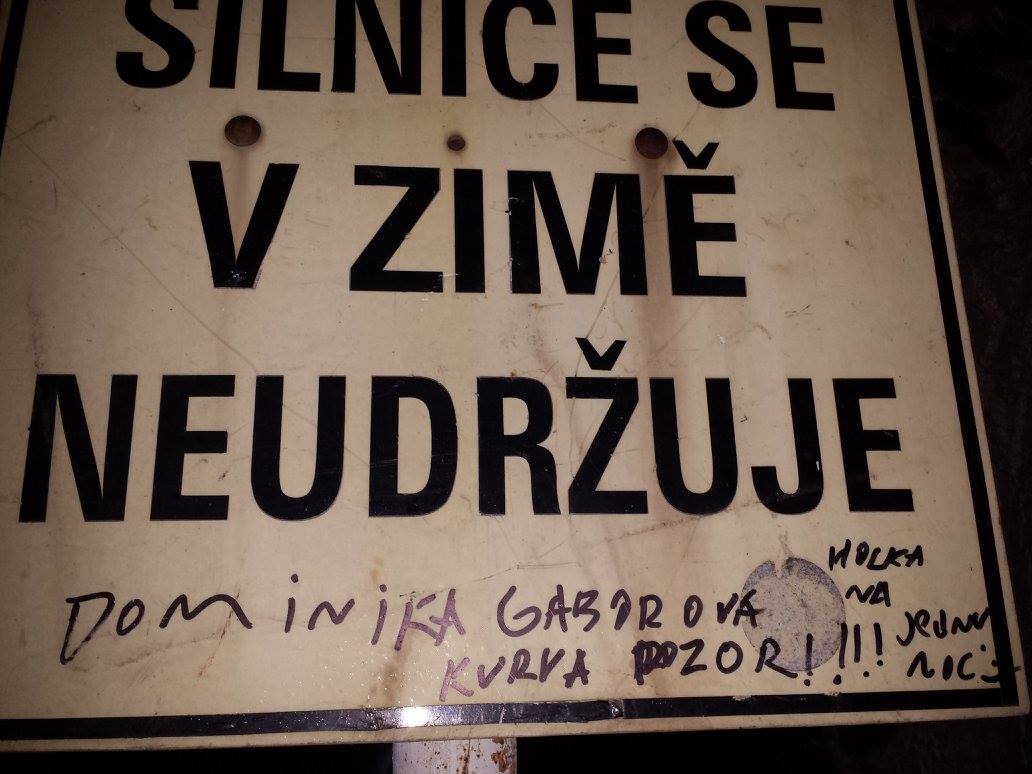 SILNICE SE
V ZIMĚ
NEUDRŽUJE
DOMINIKA GABOROVA
KURVA POZOR!!!!
HOLKA
NA
JEDNU
NOC: